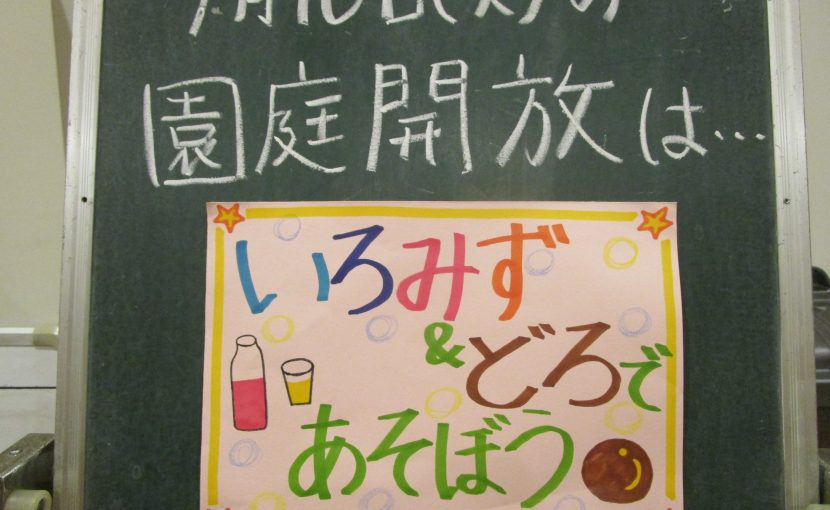 園庭開放は…
いろみず
&どろで
あそぼう